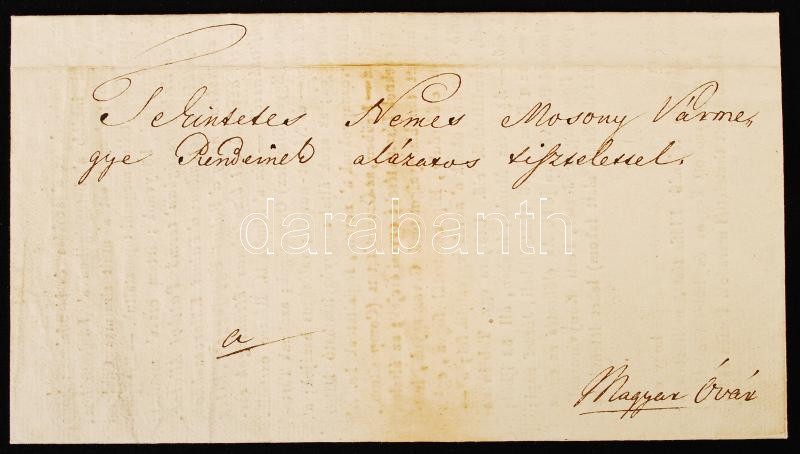 Tekintetes Nemes Mosony Várme„
gye Rendeinek alázatos tisztelettel.
darabanth
a
Magyar Óvár